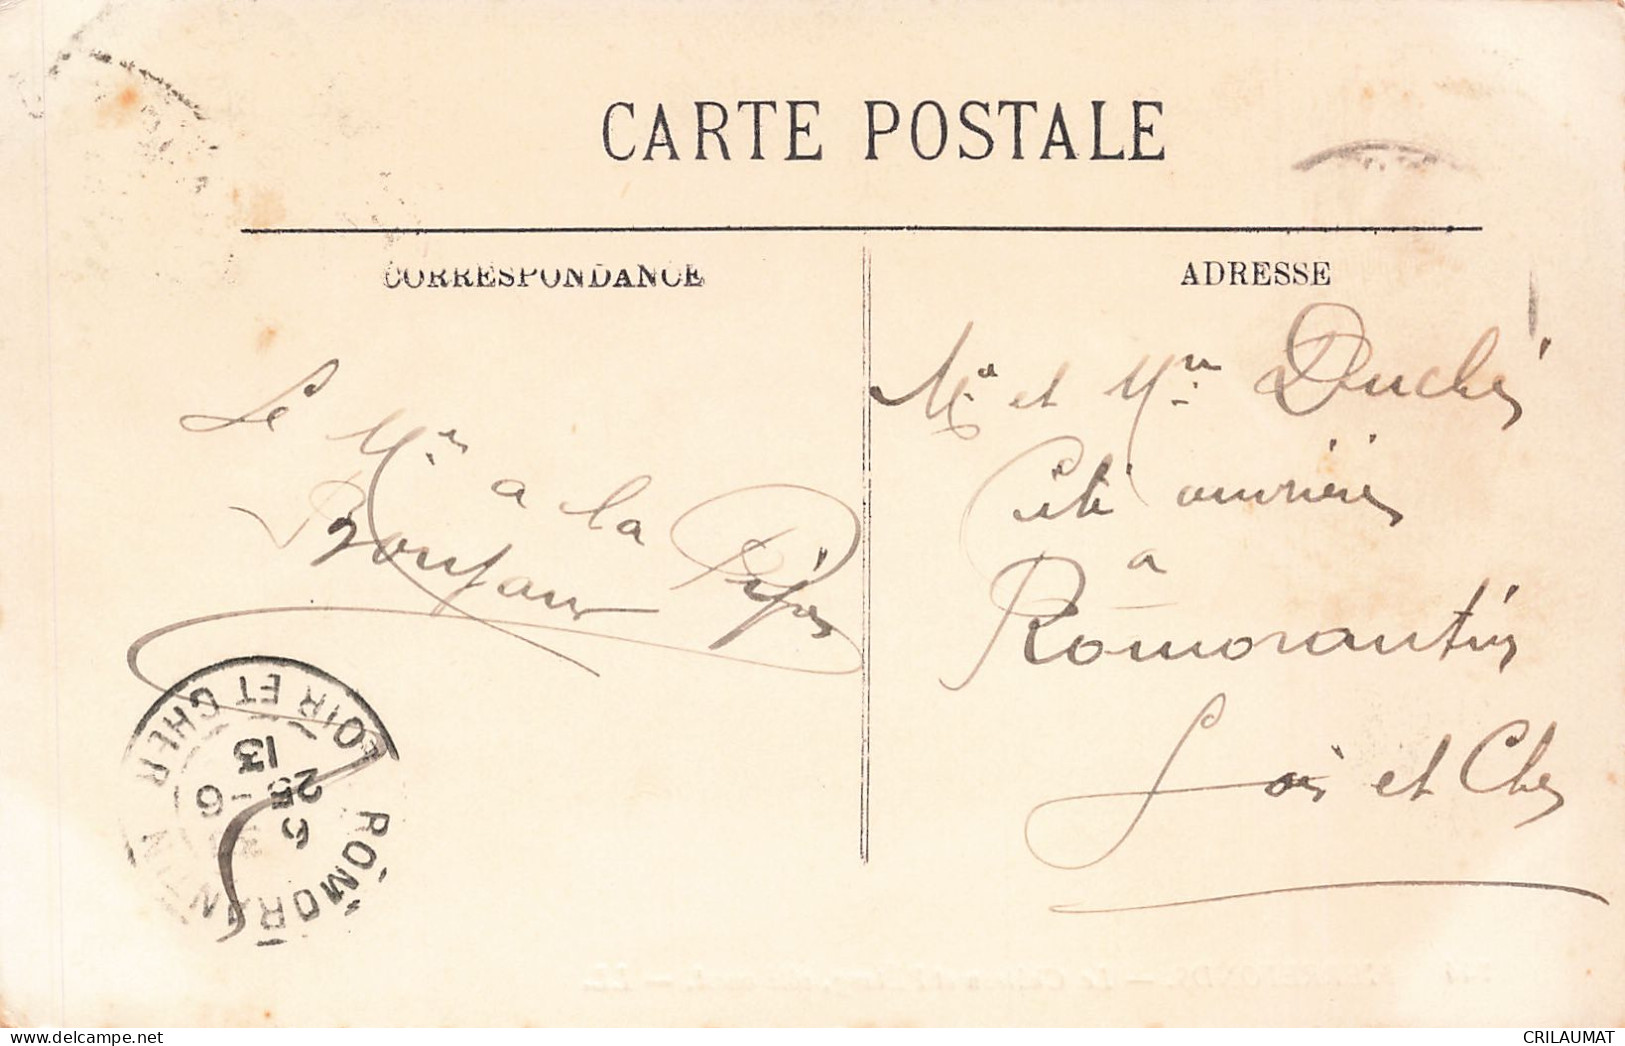 CARTE POSTALE
CORRESPONDANCE
ADRESSE
Le
a la
Bonjour
Mr et Mme Duché
Cité ouvrière
a
Romorantin
Loir et Cher
ROMORANTIN
LOIR ET CHER
6
25 - 6
13
CRILAUMAT